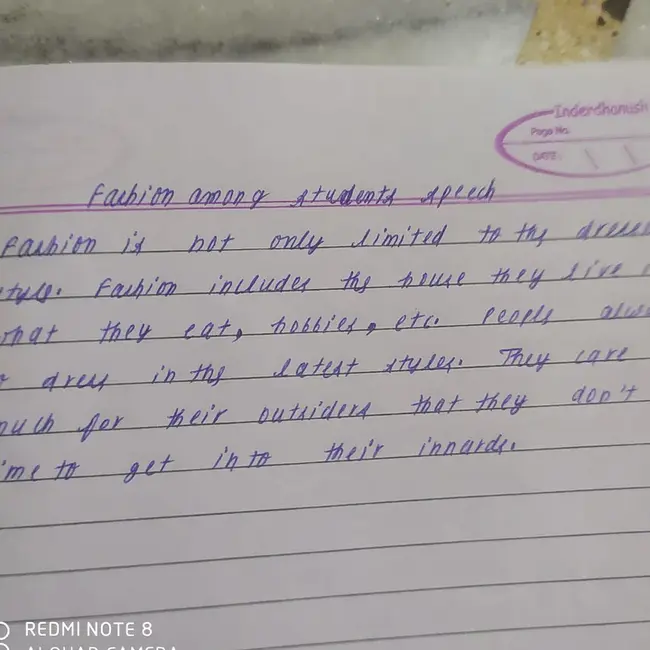 Inderdhanush
Page No.
DATE
Fashion among students speech
Fashion is not only limited to the dresses
style. Fashion includes the house they live
what they eat, hobbies, etc. People also
dress in the latest styles. They care
much for their outsiders that they don't
time to get into their innards.
REDMI NOTE 8
AI QUAD CAMERA